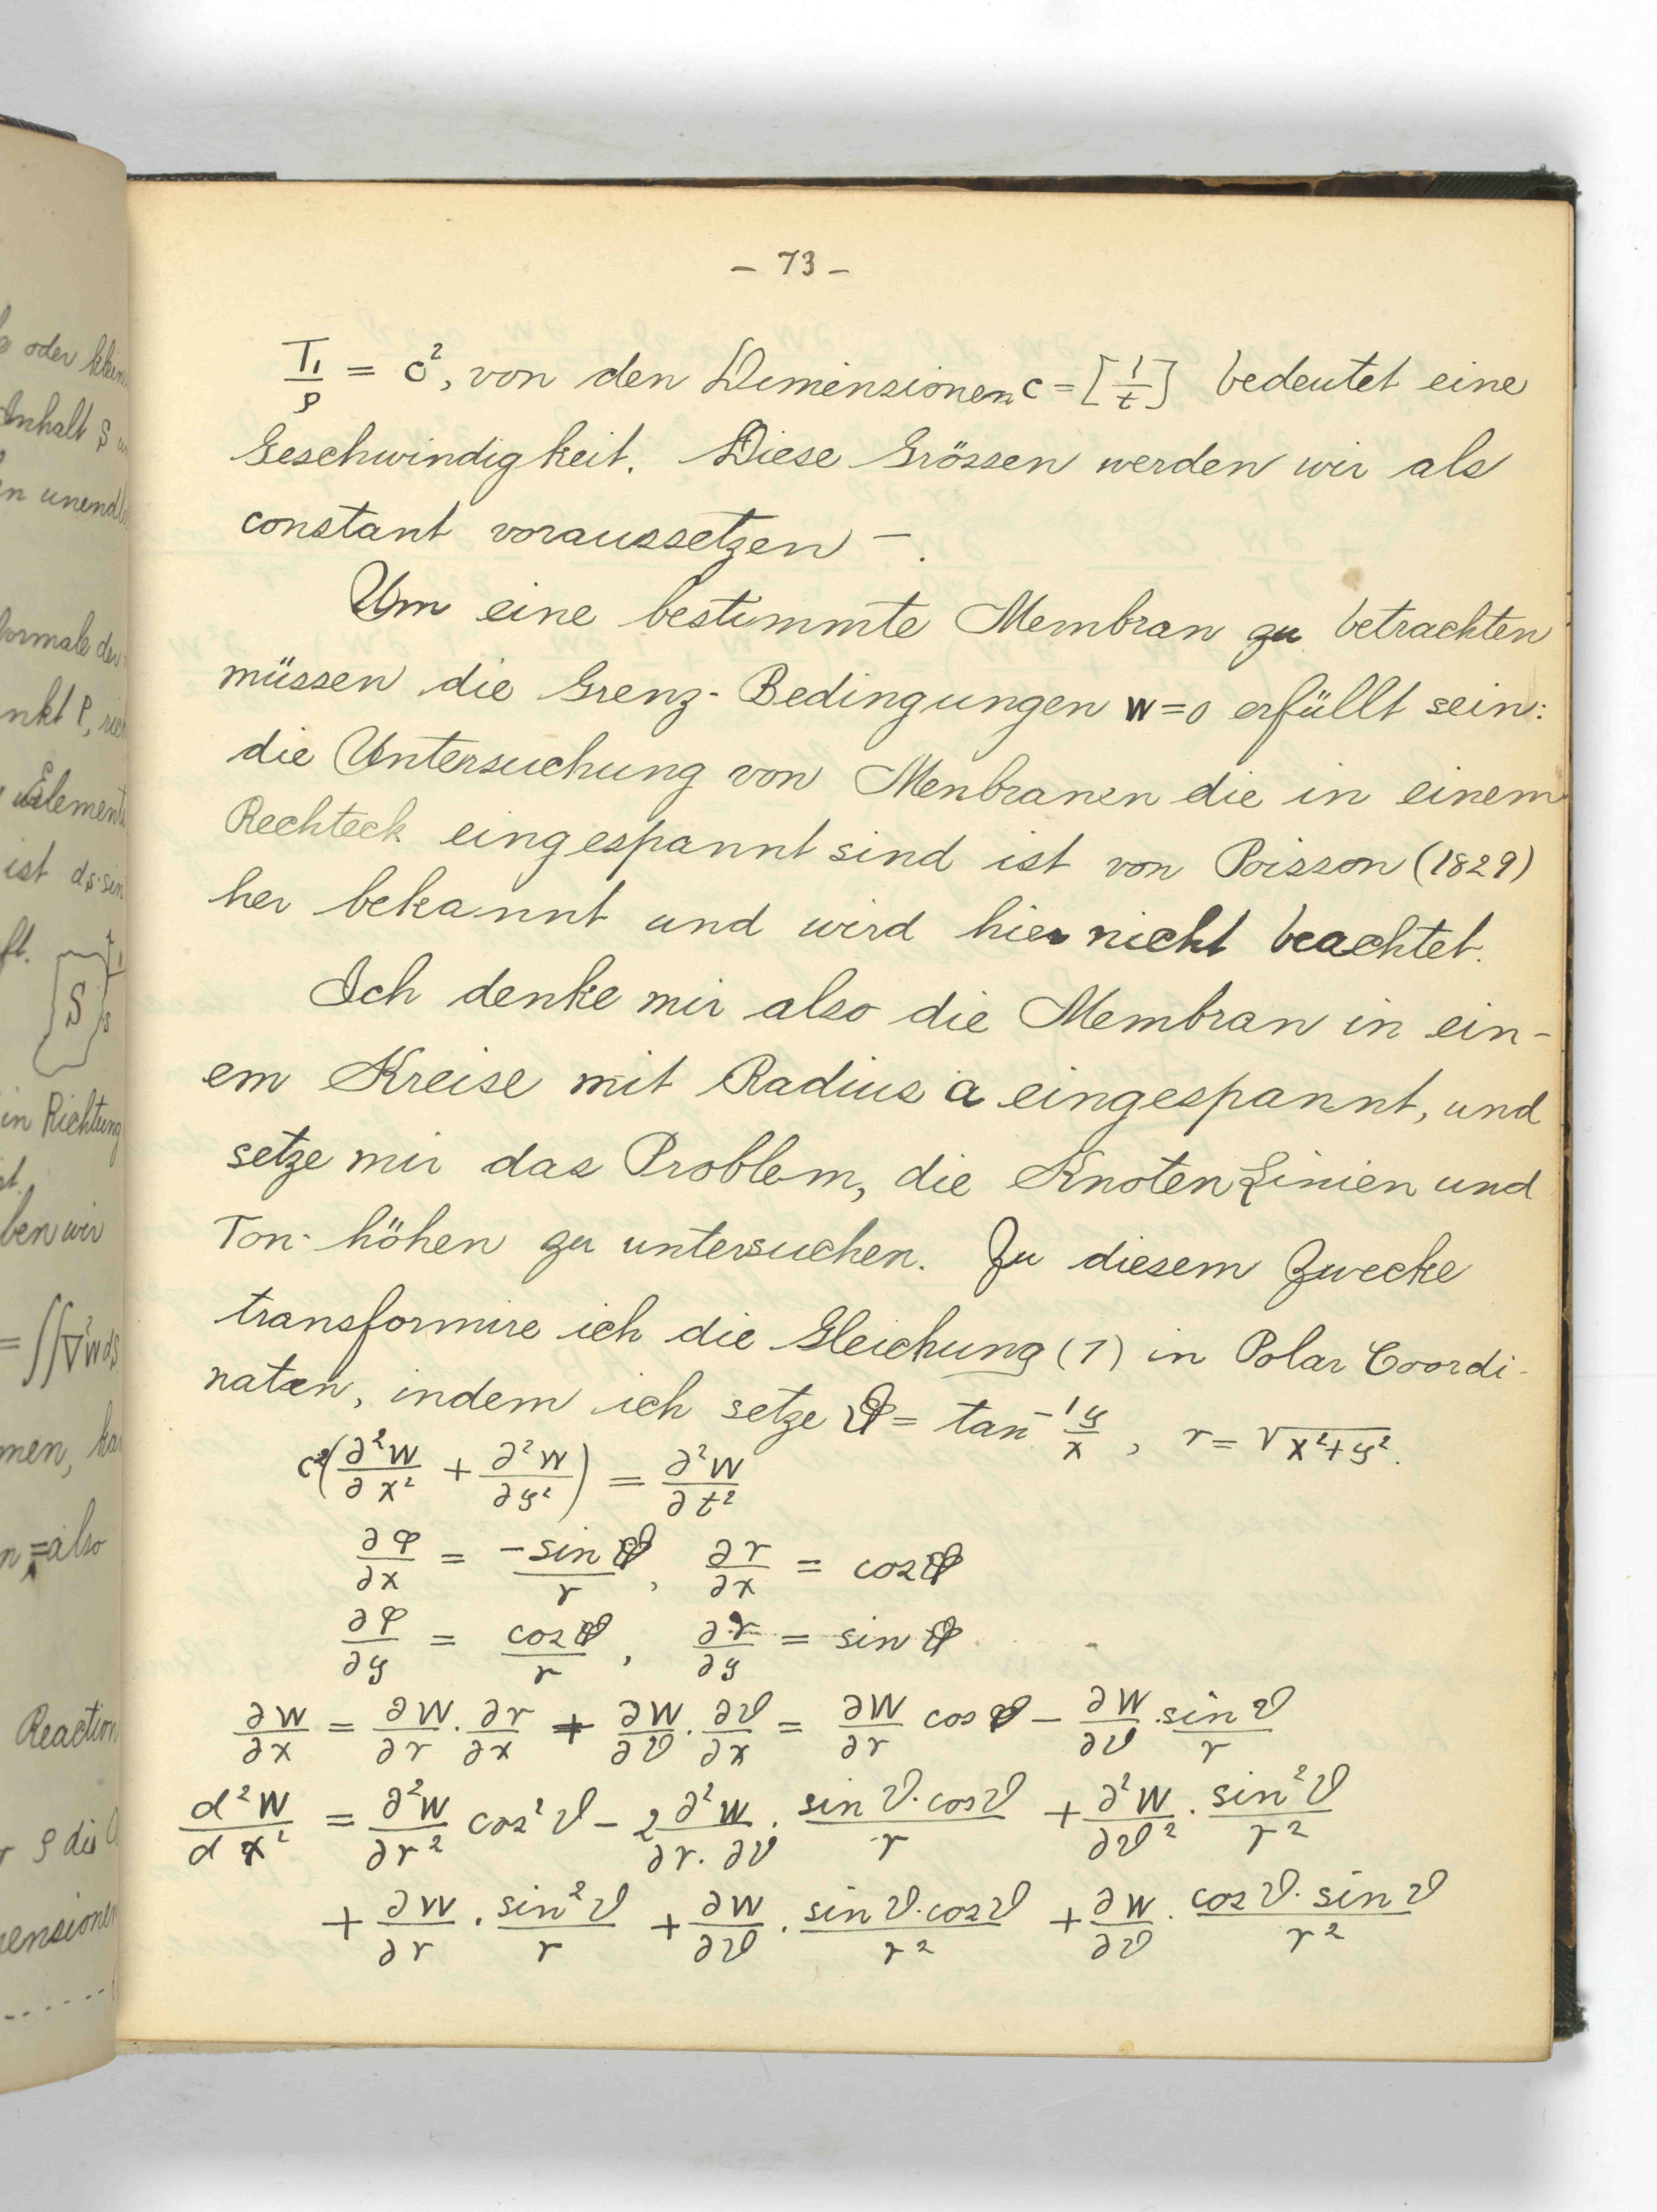 - 73 -
T₁/ρ = c², von den Dimensionen c = [l/t] bedeutet eine
Geschwindigkeit. Diese Grössen werden wir als
constant voraussetzen -.
Um eine bestimmte Membran zu betrachten
müssen die Grenz-Bedingungen w=0 erfüllt sein:
die Untersuchung von Menbranen die in einem
Rechteck eingespannt sind ist von Poisson (1829)
her bekannt und wird hier nicht beachtet.
Ich denke mir also die Membran in ein-
em Kreise mit Radius a eingespannt, und
setze mir das Problem, die Knoten Linien und
Ton-höhen zu untersuchen. Zu diesem Zwecke
transformire ich die Gleichung (1) in Polar Coordi-
naten, indem ich setze ϑ = tan⁻¹ y/x, r = √(x²+y²).
c²(∂²w/∂x² + ∂²w/∂y²) = ∂²w/∂t²
∂φ/∂x = -sin ϑ/r, ∂r/∂x = cos ϑ
∂φ/∂y = cos ϑ/r, ∂r/∂y = sin ϑ
∂w/∂x = ∂w/∂r · ∂r/∂x + ∂w/∂ϑ · ∂ϑ/∂x = ∂w/∂r cos ϑ - ∂w/∂ϑ · sin ϑ/r
d²w/dx² = ∂²w/∂r² cos²ϑ - 2 ∂²w/∂r·∂ϑ · sin ϑ·cos ϑ/r + ∂²w/∂ϑ² · sin²ϑ/r²
+ ∂w/∂r · sin²ϑ/r + ∂w/∂ϑ · sin ϑ·cos ϑ/r² + ∂w/∂ϑ · cos ϑ·sin ϑ/r²